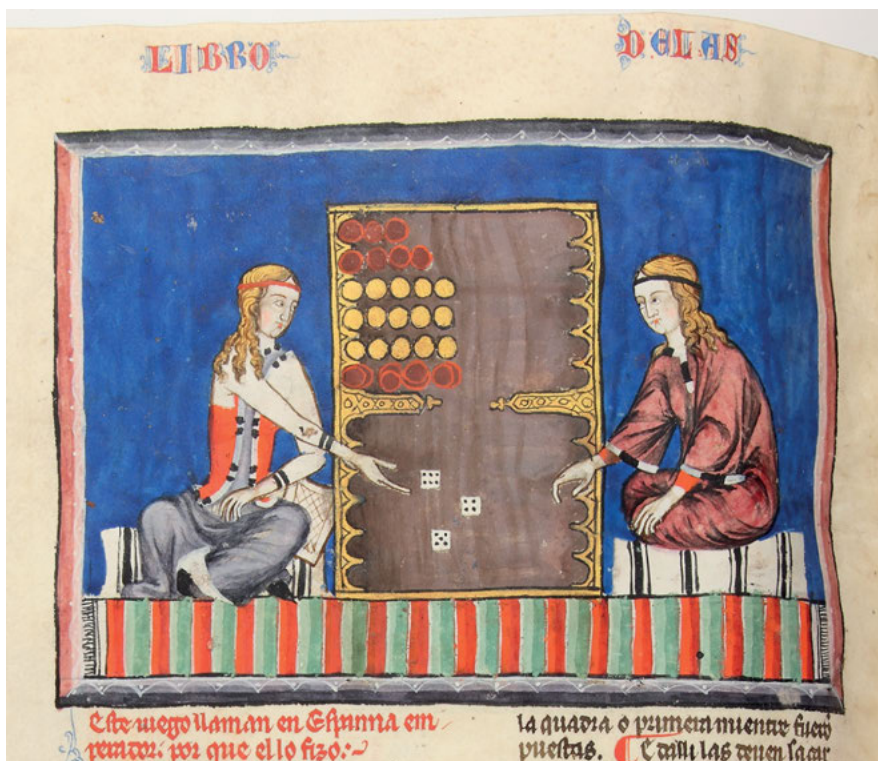 LIBRO
DELAS
Este iuego llaman en Espanna em
perador; por que el lo fizo:~
la quadra o primeramientre fuero
puestas. Et alli las deuen sacar